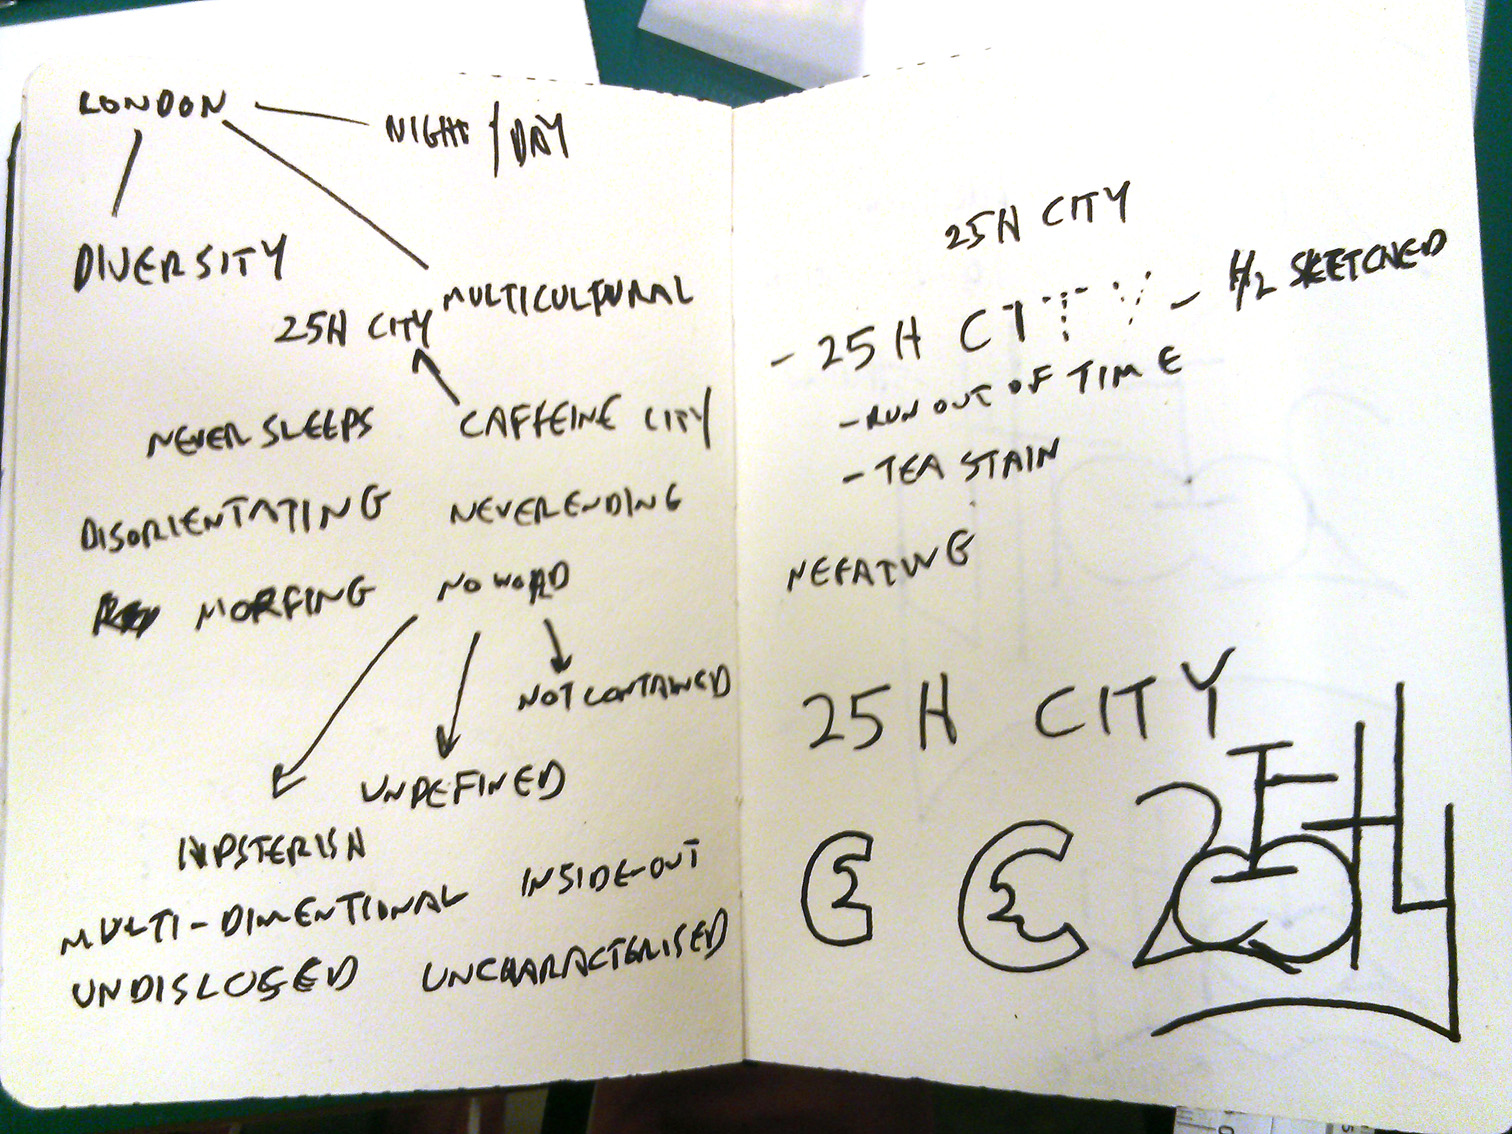 LONDON
NIGHT/DAY
DIVERSITY
MULTICULTURAL
25H CITY
NEVER SLEEPS
CAFFEINE CITY
DISORIENTATING
NEVERENDING
MORFING
NO WORD
NOT CONTAINED
UNDEFINED
HIPSTERISH
MULTI-DIMENTIONAL
INSIDE-OUT
UNDISLOSED
UNCHARACTERISED
25H CITY
- 25H CITY - 1/2 SKETCHED
- RUN OUT OF TIME
- TEA STAIN
25H CITY
25H